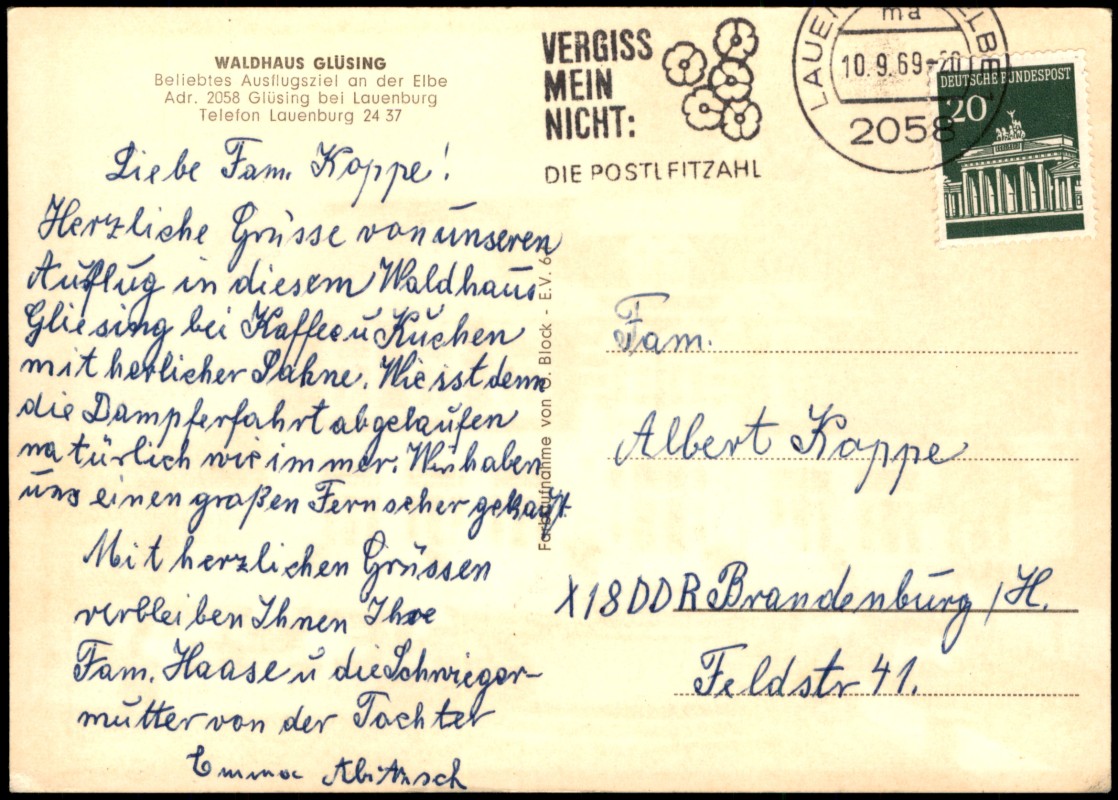 WALDHAUS GLÜSING
Beliebtes Ausflugsziel an der Elbe
Adr. 2058 Glüsing bei Lauenburg
Telefon Lauenburg 24 37
Liebe Fam. Koppe!
Herzliche Grüsse von unseren
Ausflug in diesem Waldhaus
Gliesing bei Kaffee u Kuchen
mit herlicher Sahne. Wie ist denn
die Dampferfahrt abgelaufen
natürlich wie immer. Wir haben
uns einen großen Fernseher gekauft.
Mit herzlichen Grüssen
verbleiben Ihnen Ihre
Fam. Haase u die Schwieger-
mutter von der Tochter
Emma
Farbaufnahme von O. Block - E.V. 6
VERGISS
MEIN
NICHT:
DIE POSTLEITZAHL
ma
10.9.69-20
2058
DEUTSCHE BUNDESPOST
20
Fam.
Albert Koppe
X18 DDR Brandenburg /H.
Feldstr 41.